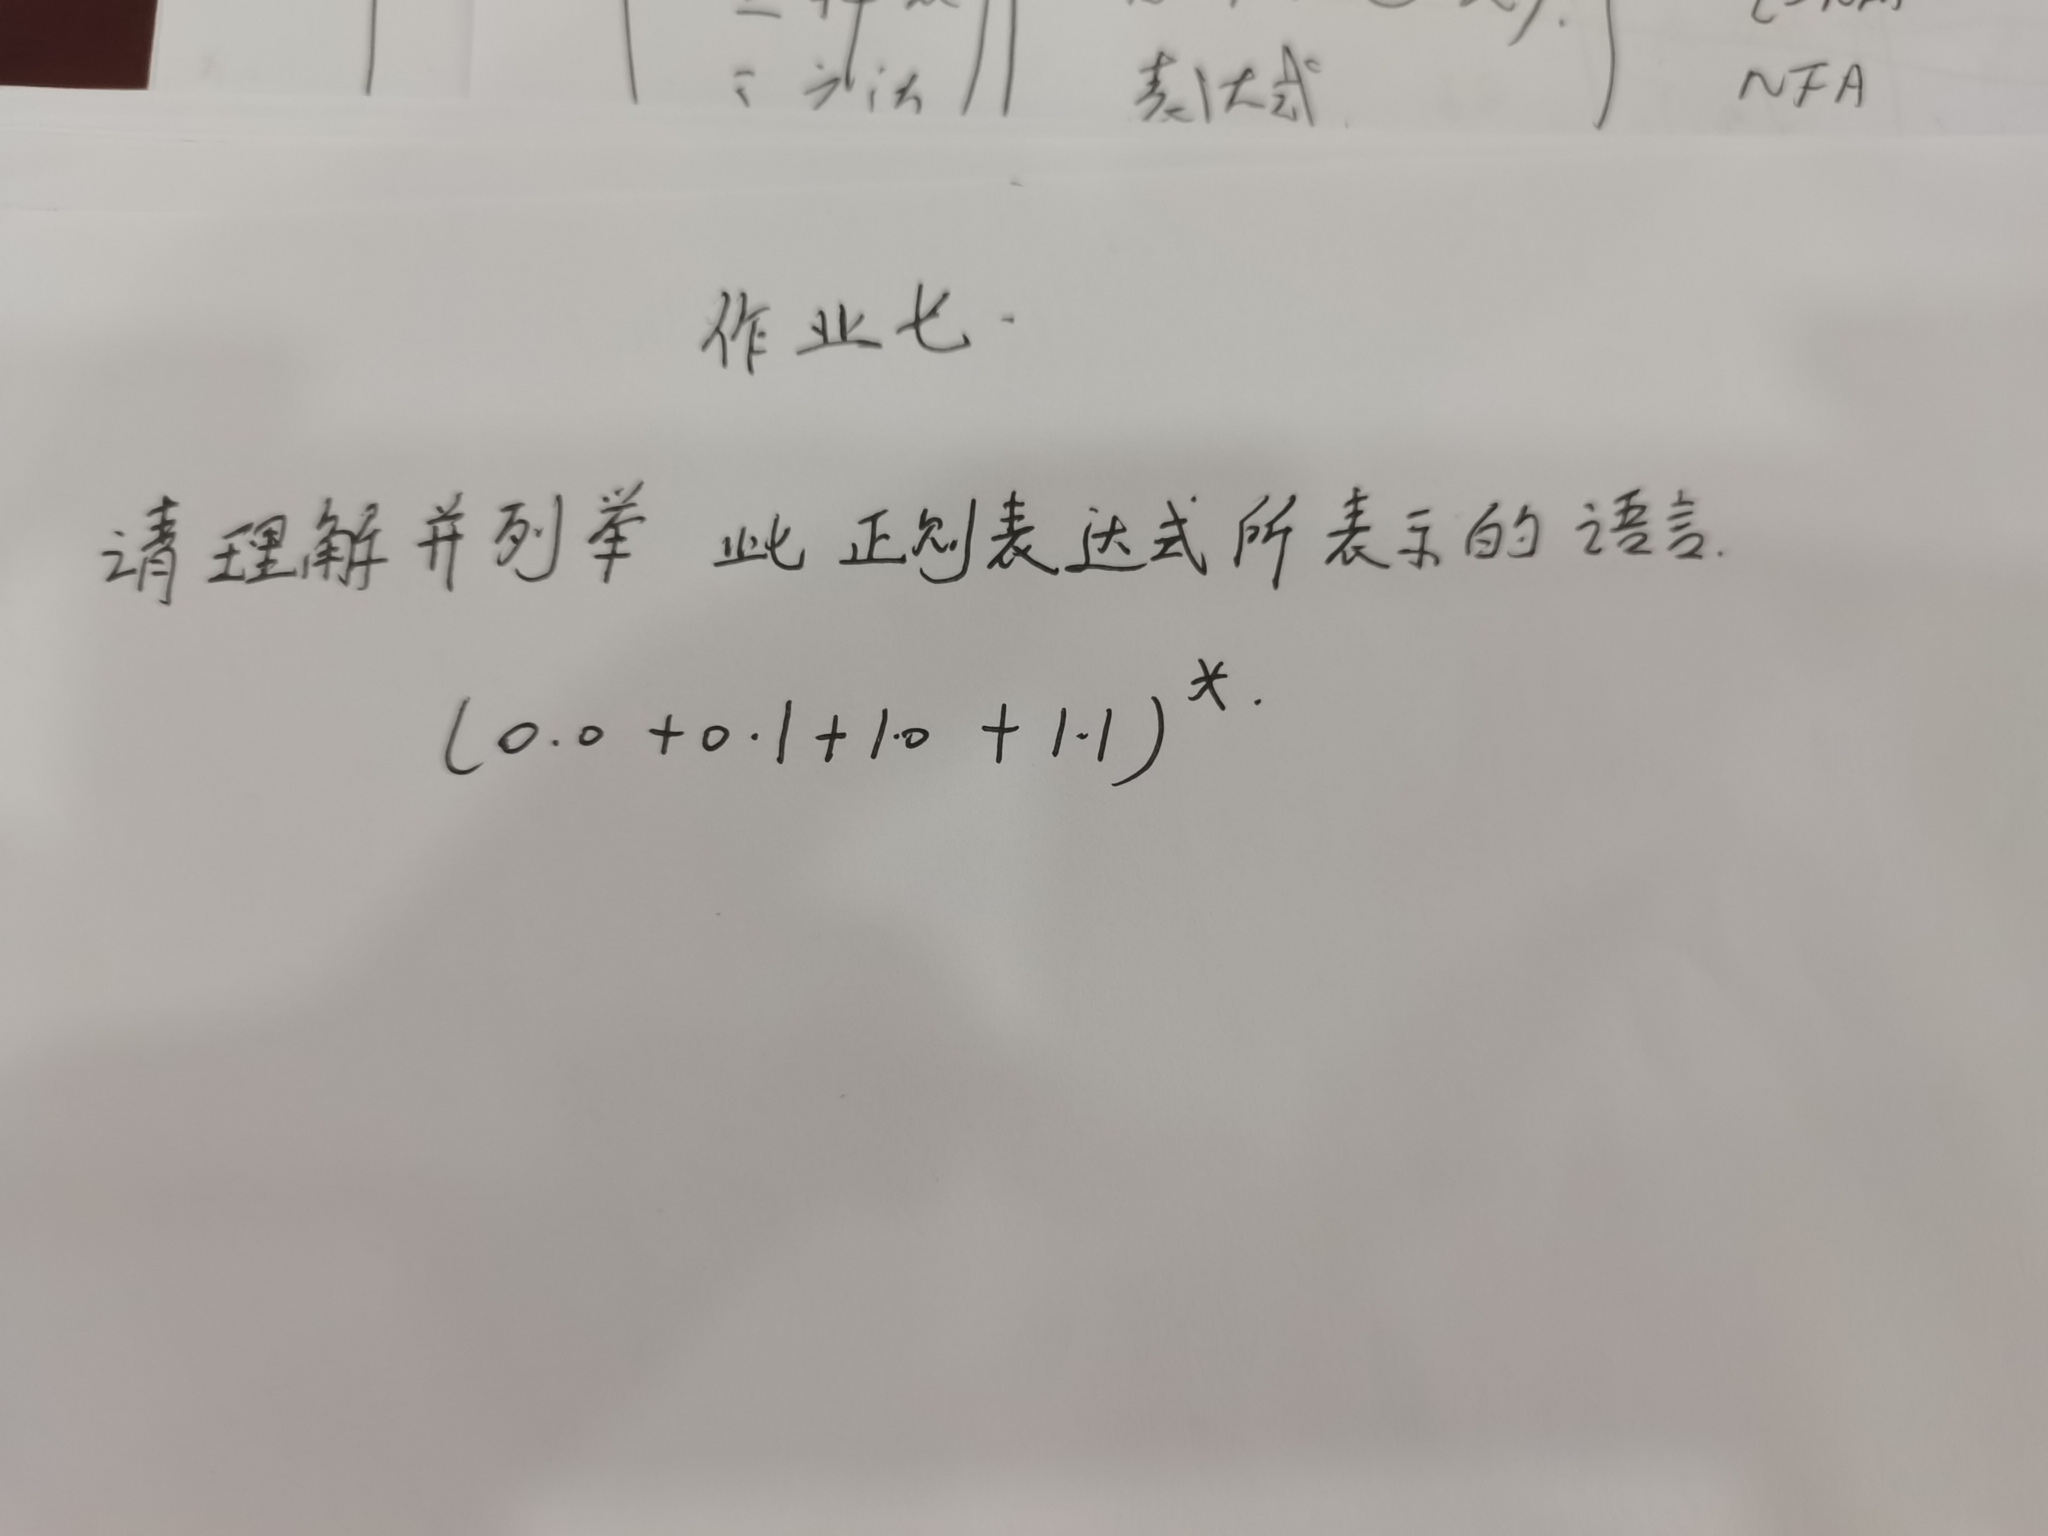 方法
表达式
NFA
作业七.
请理解并列举 此正则表达式所表示的语言.
(0.0+0.1+1.0+1.1)*.